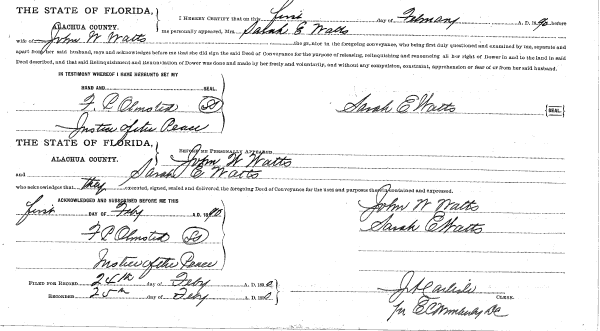 THE STATE OF FLORIDA,
ALACHUA COUNTY.
I HEREBY CERTIFY that on this first day of February A. D. 1890, before
me personally appeared, Mrs. Sarah E Watts
wife of John W Watts the grantor in the foregoing conveyance, who being first duly questioned and examined by me, separate and
apart from her said husband, says and acknowledges before me that she did sign the said Deed of Conveyance for the purpose of releasing, relinquishing and renouncing all her right of Dower in and to the land in said
Deed described, and that said Relinquishment and Renunciation of Dower was done and made by her freely and voluntarily, and without any compulsion, constraint, apprehension or fear of or from her said husband.
IN TESTIMONY WHEREOF I HAVE HEREUNTO SET MY
HAND AND SEAL
F. P. Olmsted
Sarah E Watts SEAL
Justice of the Peace
THE STATE OF FLORIDA,
ALACHUA COUNTY.
BEFORE ME PERSONALLY APPEARED
John W Watts
and Sarah E Watts
who acknowledges that they executed, signed, sealed and delivered the foregoing Deed of Conveyance for the uses and purposes therein contained and expressed.
ACKNOWLEDGED AND SUBSCRIBED BEFORE ME THIS
first DAY OF Feby A.D. 1890.
John W Watts
Sarah E Watts
F. P. Olmsted
Justice of the Peace
FILED FOR RECORD 24th day of Feby A. D. 1890
RECORDED 25th day of Feby A. D. 1890
J A Carlisle CLERK.
per DC